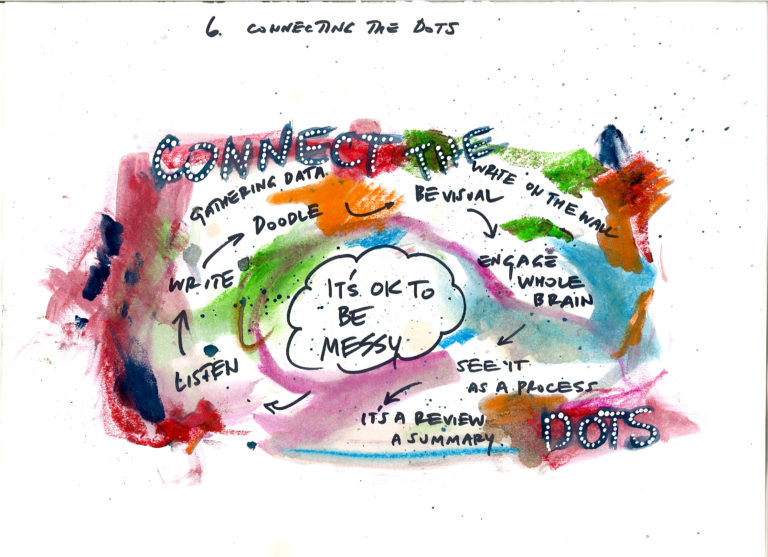 6. CONNECTING THE DOTS
CONNECT THE
GATHERING DATA
DOODLE
BE VISUAL
WRITE ON THE WALL
WRITE
ENGAGE
WHOLE
BRAIN
IT'S OK TO
BE
MESSY
LISTEN
SEE IT
AS A PROCESS
IT'S A REVIEW
A SUMMARY
DOTS